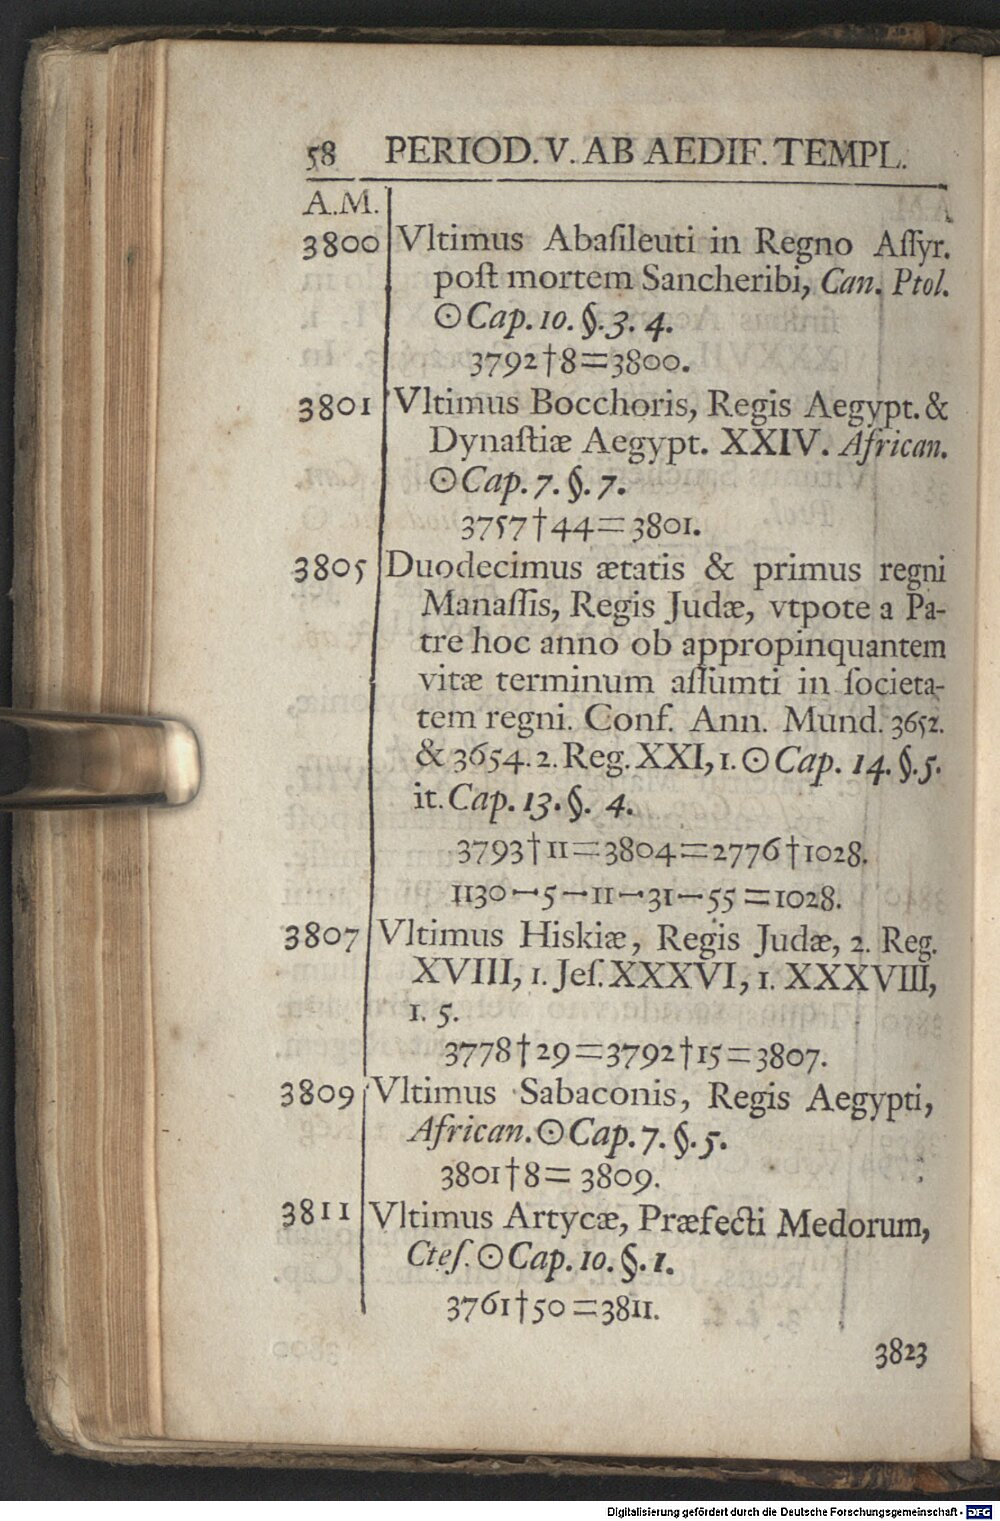 58 PERIOD. V. AB AEDIF. TEMPL.
A.M.
3800 Vltimus Abaſileuti in Regno Aſſyr.
poſt mortem Sancheribi, Can. Ptol.
☉ Cap. 10. §. 3. 4.
3792†8=3800.
3801 Vltimus Bocchoris, Regis Aegypt. &
Dynaſtiæ Aegypt. XXIV. African.
☉ Cap. 7. §. 7.
3757†44=3801.
3805 Duodecimus ætatis & primus regni
Manaſſis, Regis Judæ, vtpote a Pa-
tre hoc anno ob appropinquantem
vitæ terminum aſſumti in ſocieta-
tem regni. Conf. Ann. Mund. 3652.
& 3654. 2. Reg. XXI, 1. ☉ Cap. 14. §. 5.
it. Cap. 13. §. 4.
3793†11=3804=2776†1028.
1130—5—11—31—55=1028.
3807 Vltimus Hiskiæ, Regis Judæ, 2. Reg.
XVIII, 1. Jeſ. XXXVI, 1. XXXVIII,
1. 5.
3778†29=3792†15=3807.
3809 Vltimus Sabaconis, Regis Aegypti,
African. ☉ Cap. 7. §. 5.
3801†8= 3809.
3811 Vltimus Artycæ, Præfecti Medorum,
Cteſ. ☉ Cap. 10. §. 1.
3761†50=3811.
3823
Digitalisierung gefördert durch die Deutsche Forschungsgemeinschaft - DFG